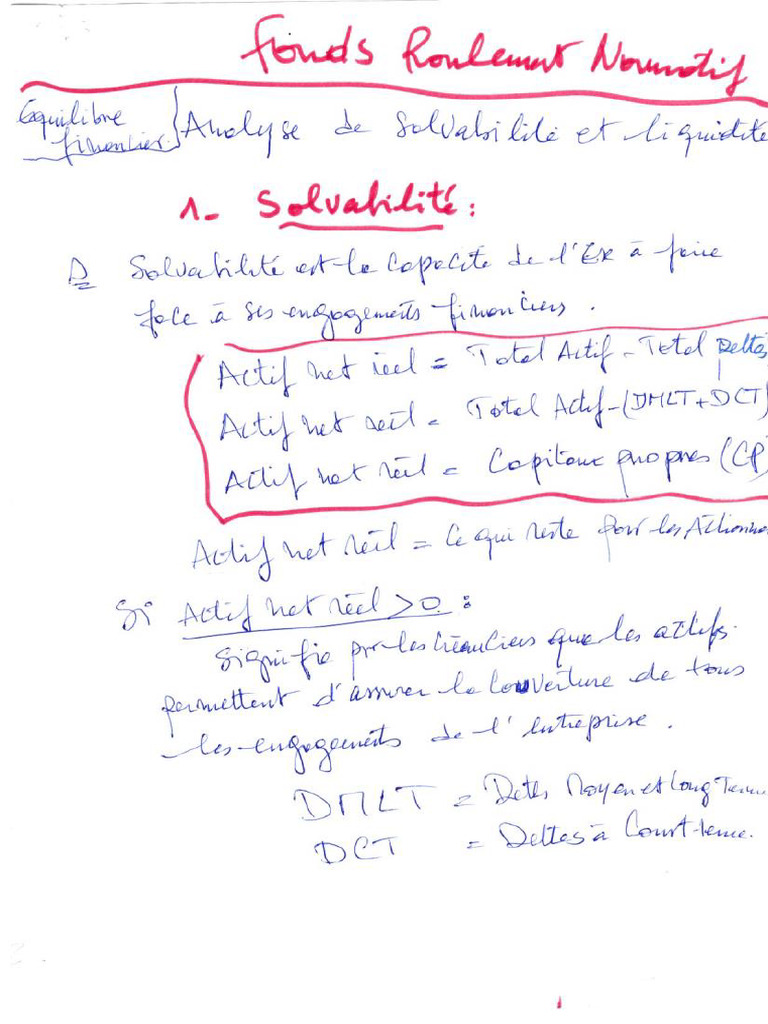 Fonds Roulement Normatif
Equilibre
financier } Analyse de Solvabilité et liquidité
1- Solvabilité :
D Solvabilité est la capacité de l'Ese à faire
face à ses engagements financiers .
Actif net réel = Total Actif - Total Dettes
Actif net réel = Total Actif - (DMLT + DCT)
Actif net réel = Capitaux propres (CP)
Actif net réel = Ce qui reste pour les Actionna
Si Actif net réel > 0 :
signifie pr les créanciers que les actifs
permettent d'assurer la couverture de tous
les engagements de l'entreprise .
DMLT = Dettes Moyen et Long Terme
DCT = Dettes à Court terme.